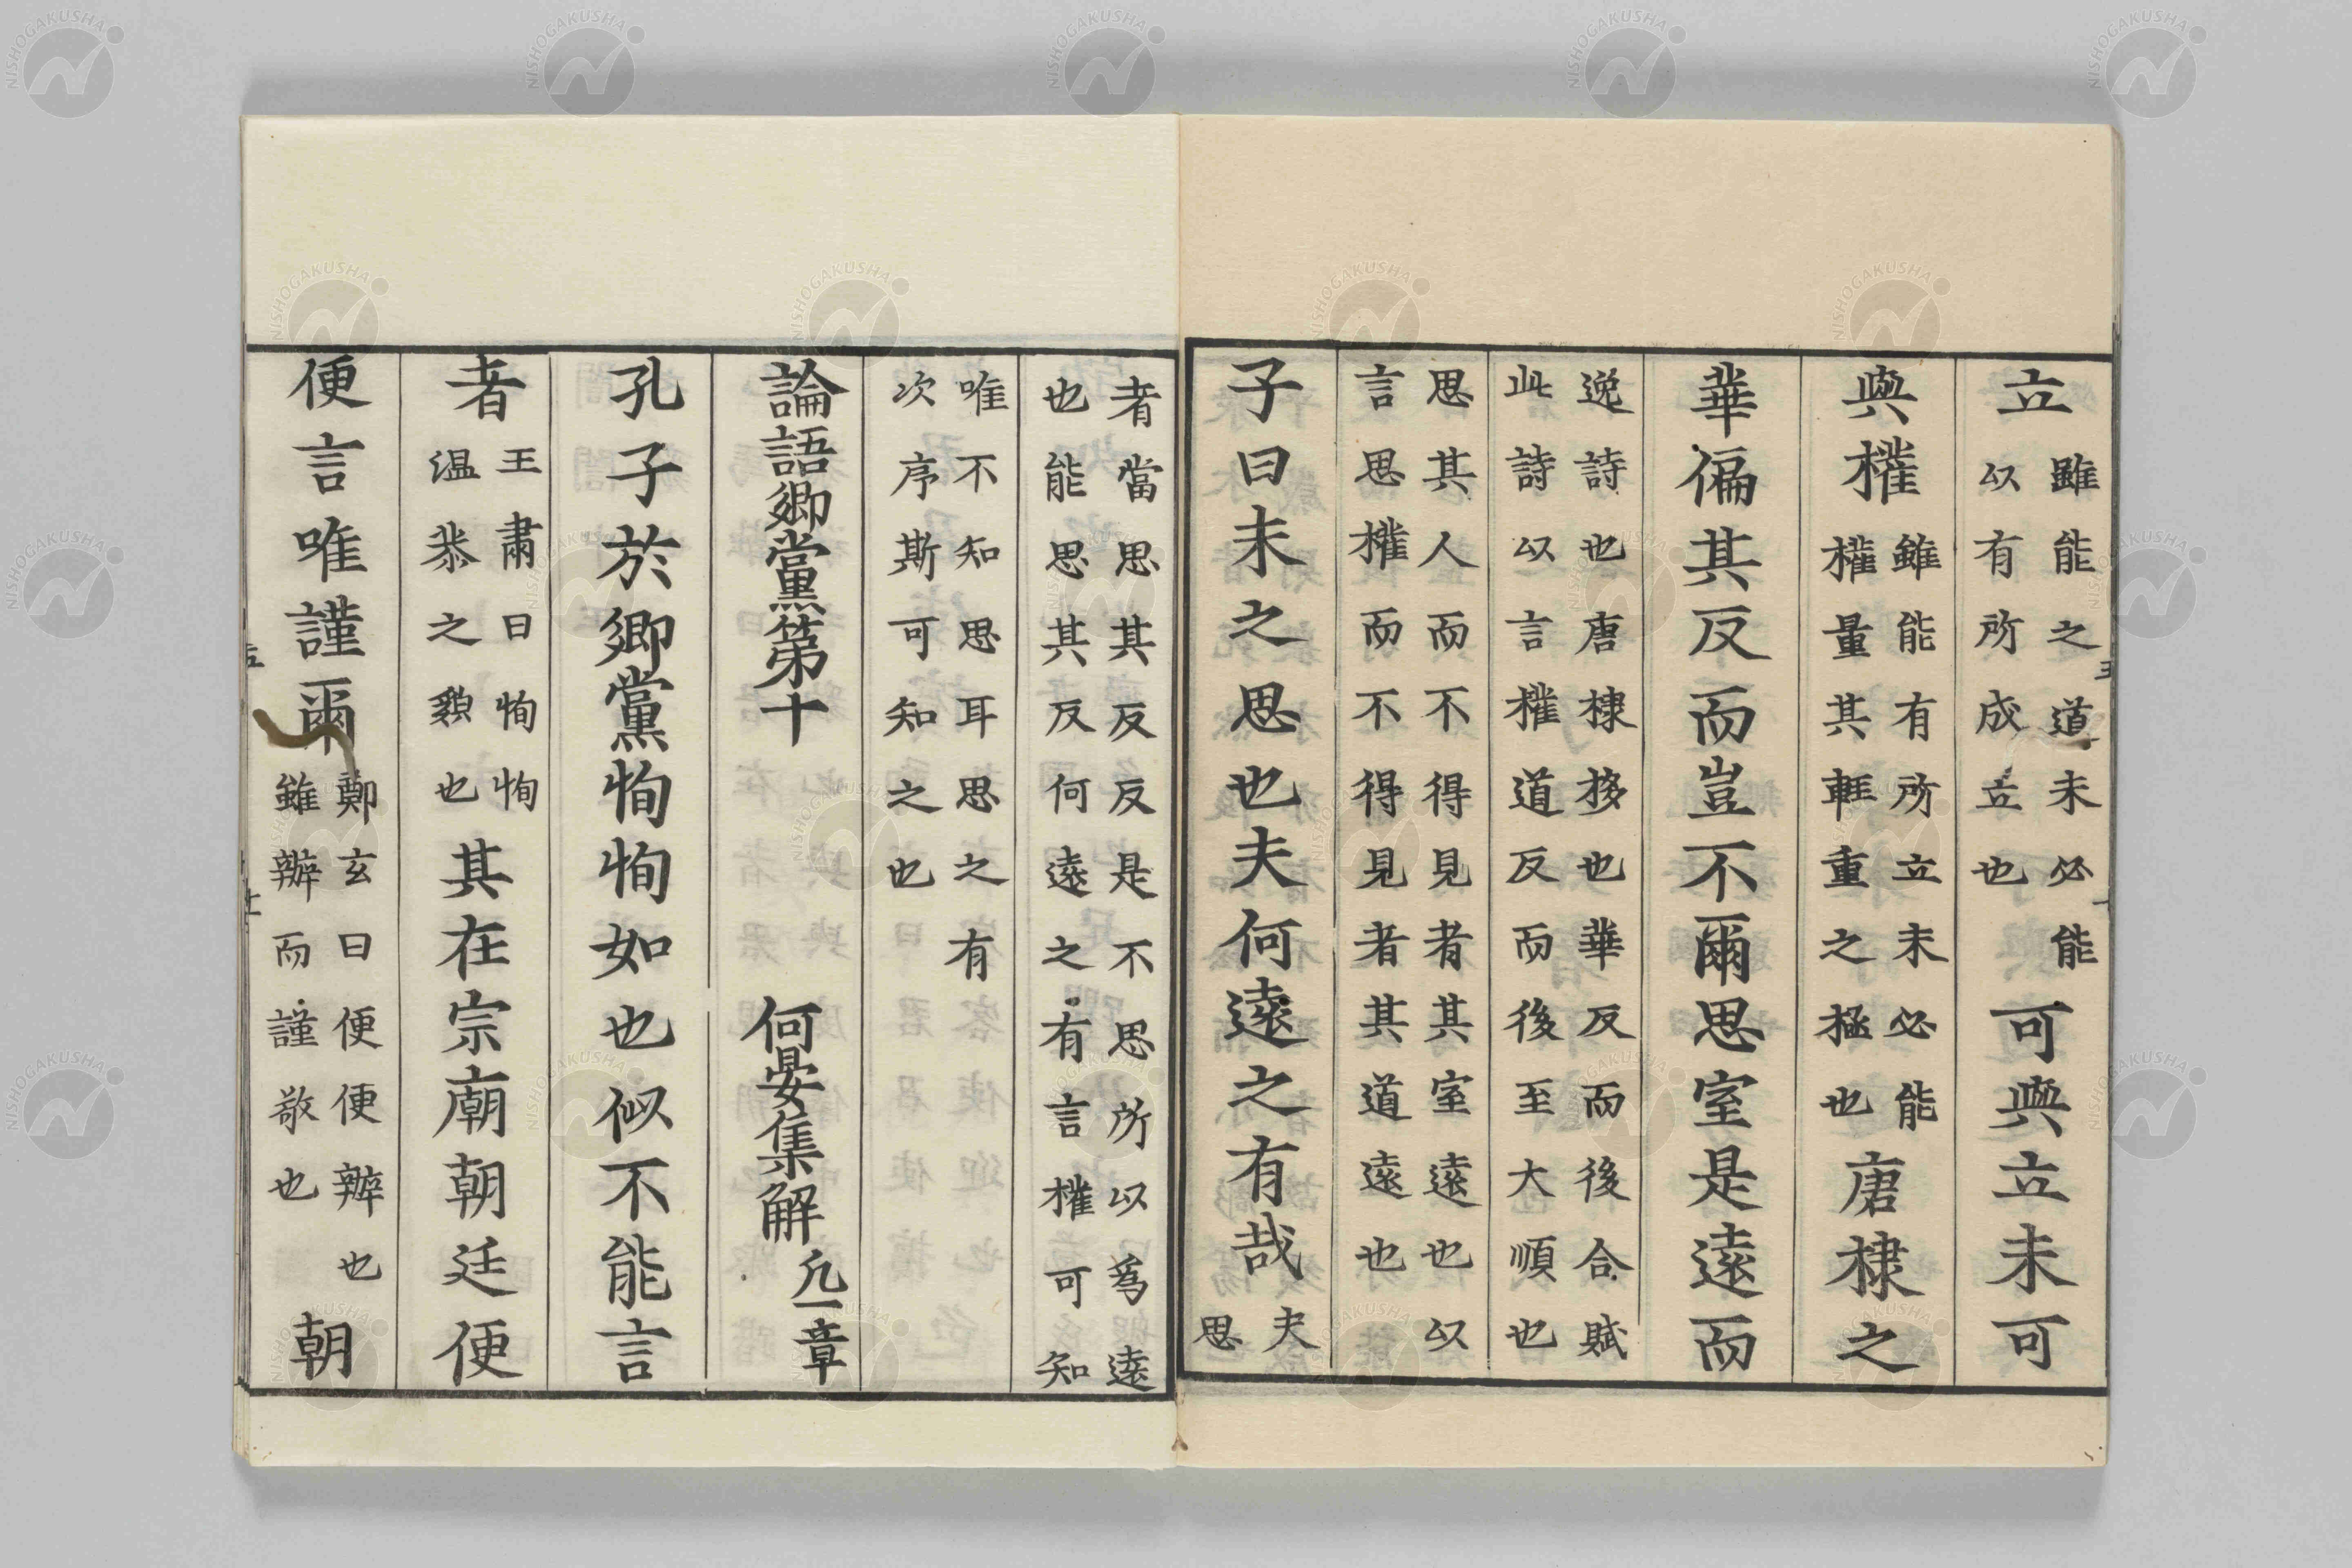 立雖能之道未必能以有所成立也可與立未可
與權雖能有所立未必能權量其輕重之極也唐棣之
華偏其反而豈不爾思室是遠而
逸詩也唐棣栘也華反而後合賦
此詩以言權道反而後至大順也
思其人而不得見者其室遠也以
言思權而不得見者其道遠也
子曰未之思也夫何遠之有哉夫思
者當思其反反是不思所以爲遠
也能思其反何遠之有言權可知
唯不知思耳思之有
次序斯可知之也
論語鄉黨第十 何晏集解凡一章
孔子於鄉黨恂恂如也似不能言
者王肅曰恂恂温恭之貌也其在宗廟朝廷便
便言唯謹爾鄭玄曰便便辯也雖辯而謹敬也朝